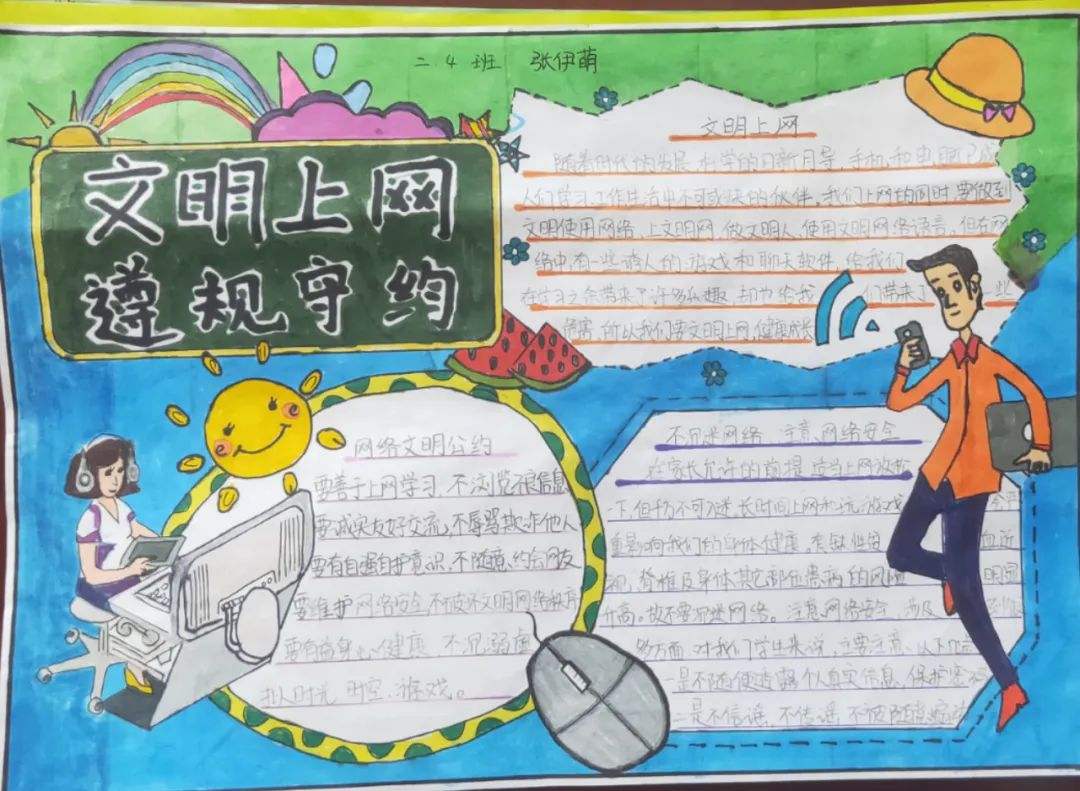 二.4 班 张伊萌
文明上网
遵规守约
文明上网
随着时代的发展,科学的日新月异,手机和电脑已成
人们学习工作生活中不可或缺的伙伴。我们上网的同时,要做到
文明使用网络,上文明网,做文明人,使用文明网络语言,但在网
络中有一些诱人的游戏和聊天软件,给我们
在学习之余带来了许多乐趣,却也给我 们带来了 一些
危害,所以我们要文明上网,健康成长
网络文明公约
要善于上网学习,不浏览不良信息
要诚实友好交流,不辱骂欺诈他人
要有自强自护意识,不随意约会网友
要维护网络安全,不破坏文明网络秩序
要有益身心健康,不沉溺虚
拟时光,时空,游戏。
不沉迷网络,注意网络安全
在家长允许的前提,适当上网放松
一下,但千万不可入迷,长时间上网和玩游戏 会严
重影响我们的身体健康。
脊椎及身体其它部位患病的风险 明显
升高。故不要沉迷网络。注意网络安全,涉及
多方面,对我们学生来说,主要注意以下几
一是不随便透露个人真实信息,保护
二是不信谣,不传谣,不被